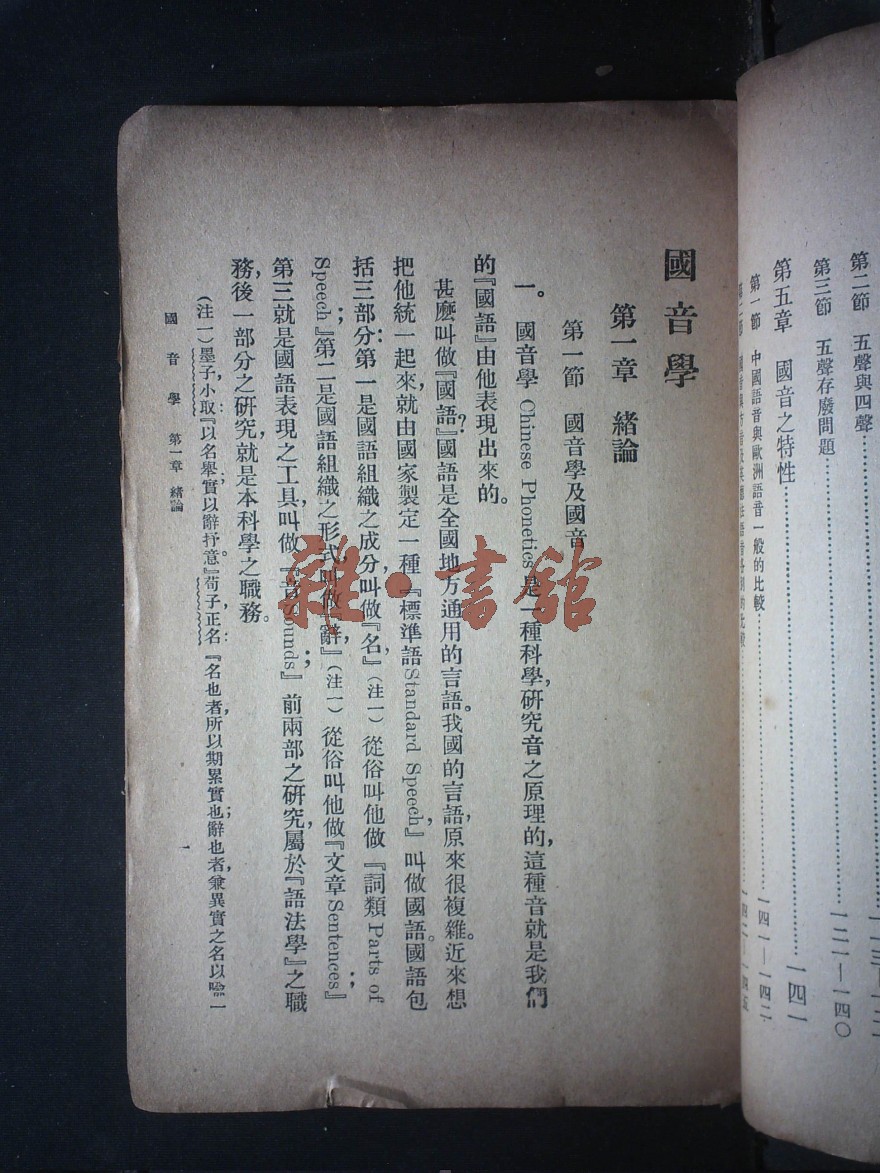 第二節　五聲與四聲
第三節　五聲存廢問題……一二一—一四〇
第五章　國音之特性……一四一
第一節　中國語音與歐洲語音一般的比較……一四一—一四二
國音學
第一章　緒論
第一節　國音學及國音
一。國音學 Chinese Phonetics 是一種科學，研究音之原理的，這種音就是我們
的『國語』由他表現出來的。
甚麼叫做『國語』？國語是全國地方通用的言語。我國的言語，原來很複雜。近來想
把他統一起來，就由國家製定一種『標準語 Standard Speech』，叫做國語。國語包
括三部分：第一是國語組織之成分，叫做『名』（注一）從俗叫他做『詞類 Parts of
Speech』；第二是國語組織之形式，叫做『辭』（注一）從俗叫他做『文章 Sentences』；
第三就是國語表現之工具，叫做『音 Sounds』；前兩部之研究，屬於『語法學』之職
務，後一部分之研究，就是本科學之職務。
（注一）墨子小取：『以名舉實，以辭抒意。』荀子正名：『名也者，所以期累實也；辭也者，兼異實之名以喩一
國音學　第一章　緒論
一
雜·書館